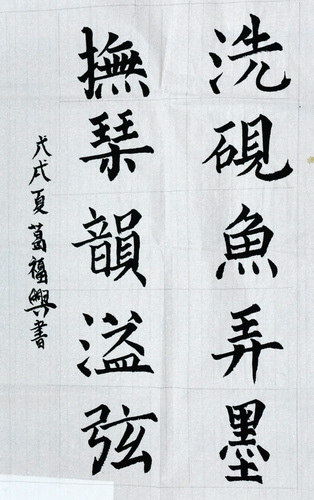 洗硯魚弄墨
撫琹韻溢弦
戊戌夏葛福興書